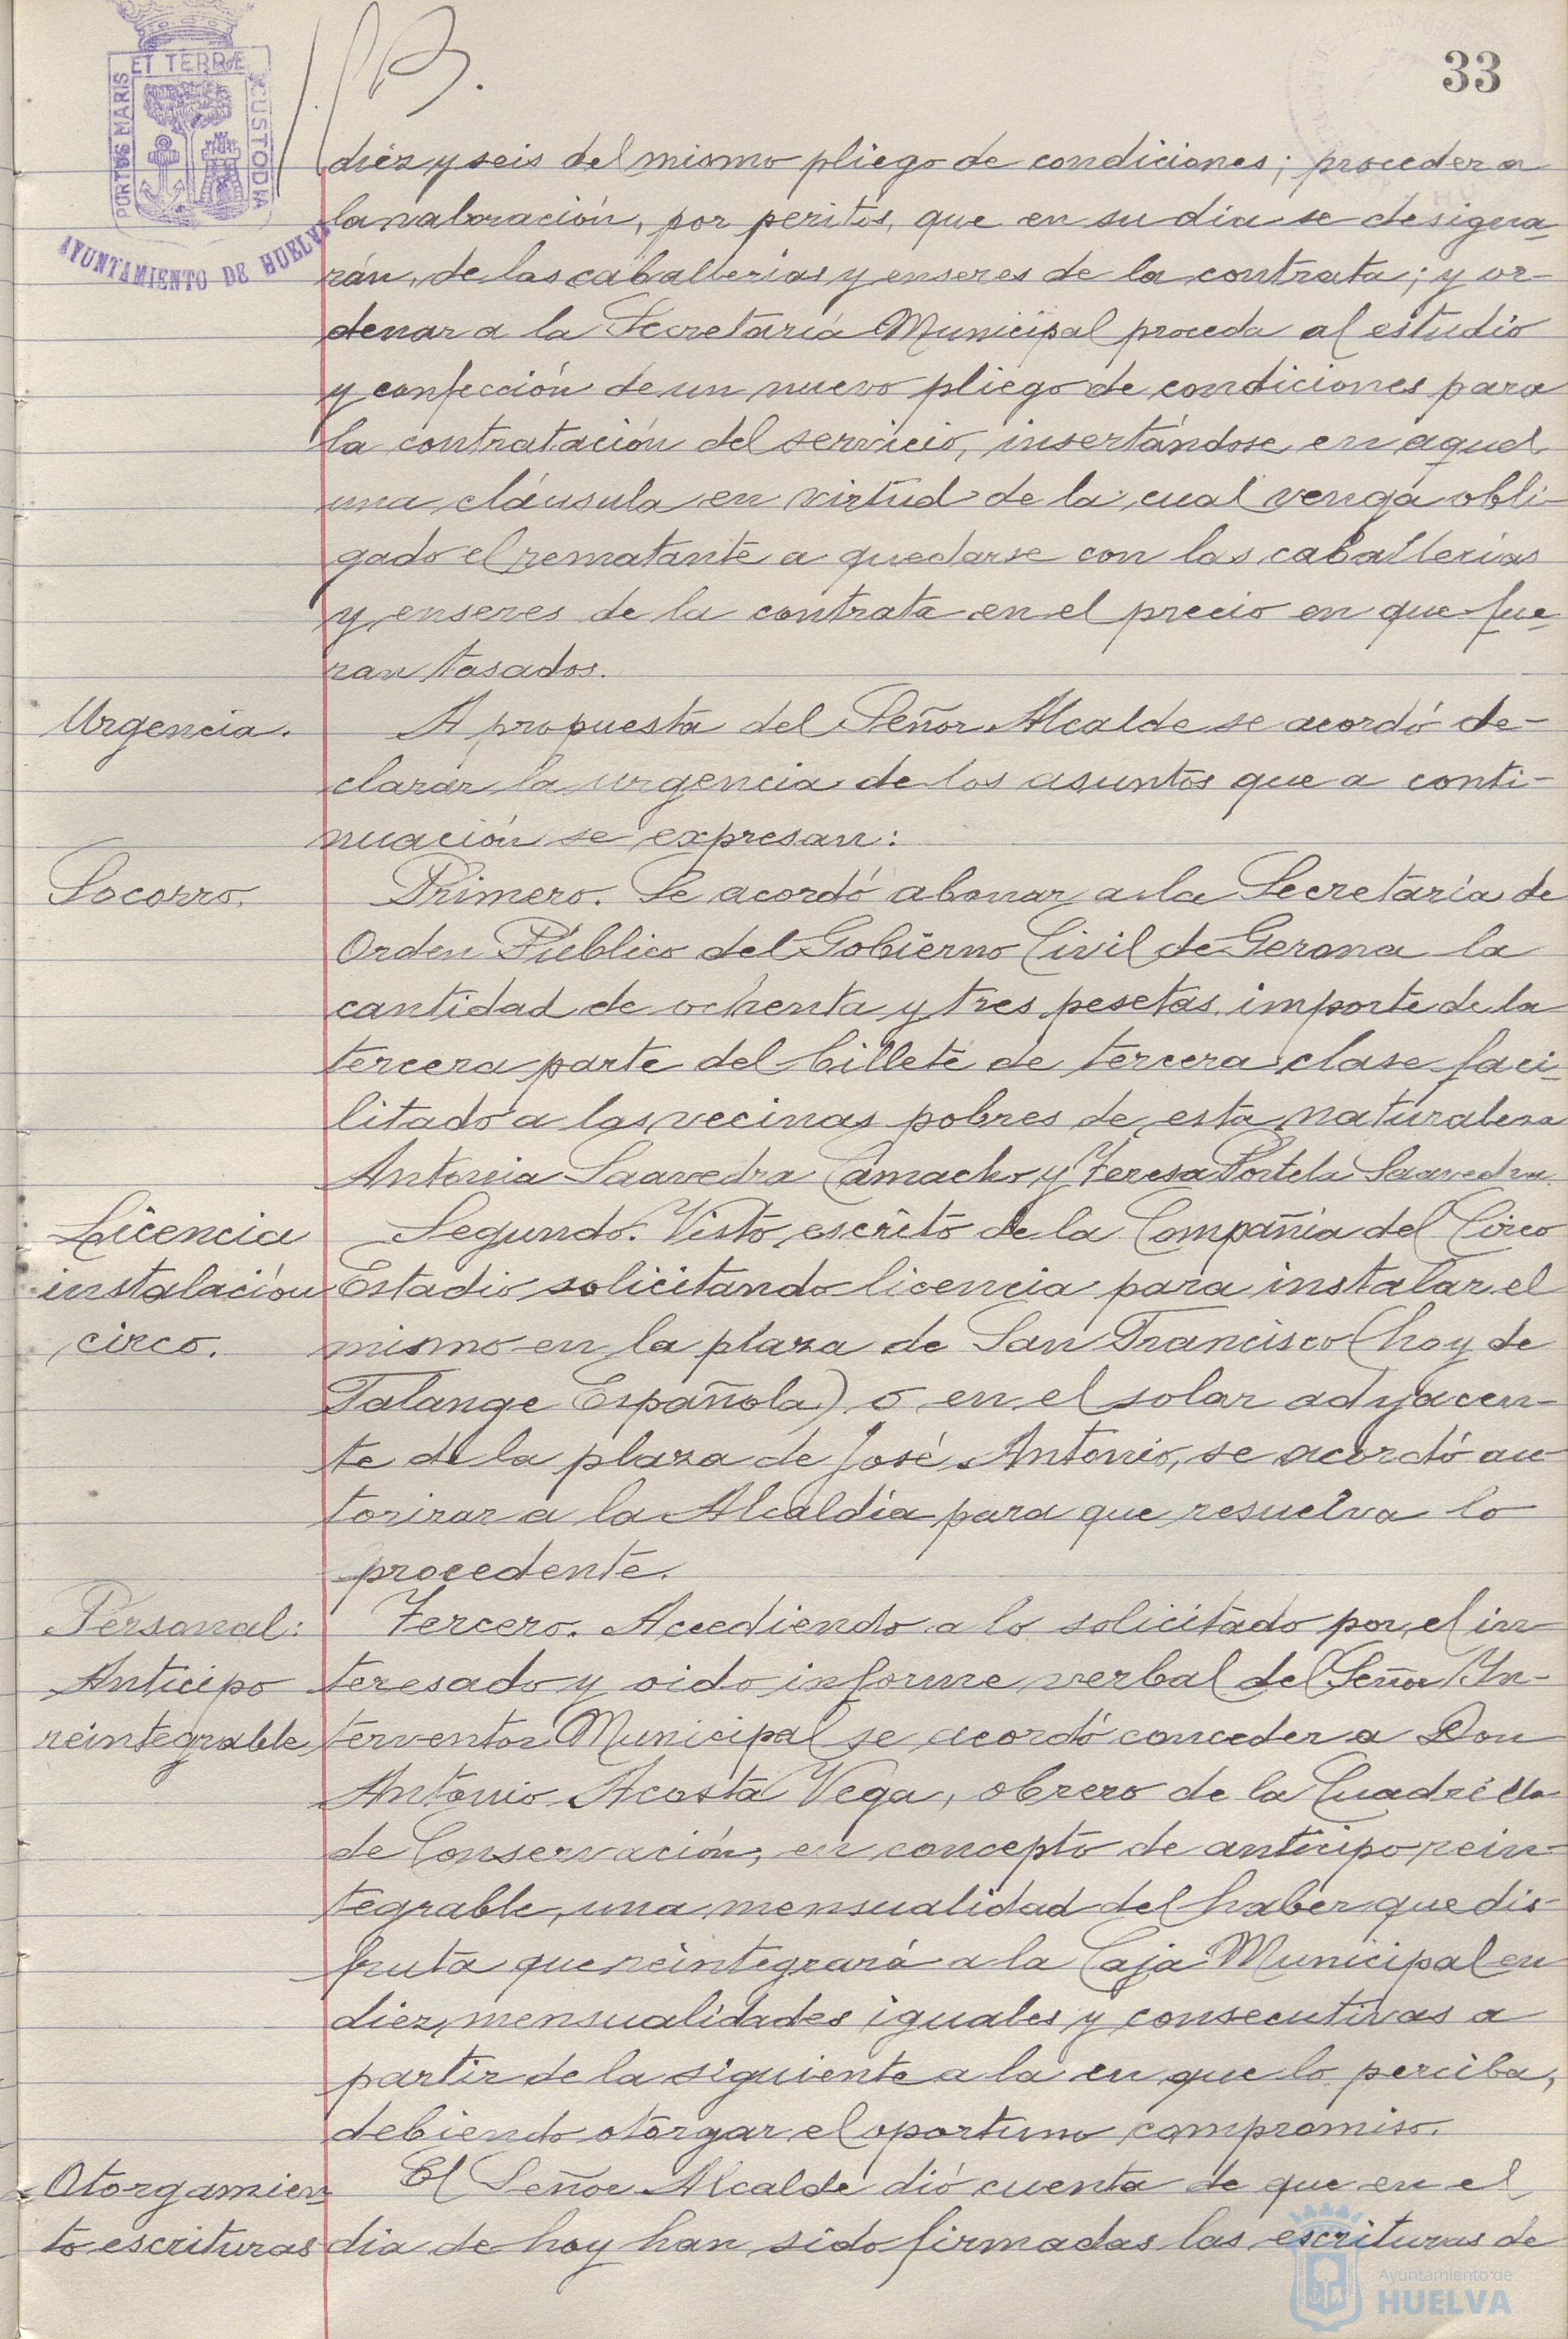 33
PORTUS MARIS
ET TERRÆ
CUSTODIA
AYUNTAMIENTO DE HUELVA
diez y seis del mismo pliego de condiciones; proceder a
la valoración, por peritos, que en su dia se designa-
rán, de las caballerias y enseres de la contrata; y or-
denar a la Secretaría Municipal proceda al estudio
y confección de un nuevo pliego de condiciones para
la contratación del servicio, insertándose en aquel
una cláusula en virtud de la cual venga obli-
gado el rematante a quedarse con las caballerias
y enseres de la contrata en el precio en que fue-
ran tasados.
Urgencia.
A propuesta del Señor Alcalde se acordó de-
clarar la urgencia de los asuntos que a conti-
nuación se expresan:
Socorro.
Primero. Se acordó abonar a la Secretaría de
Orden Público del Gobierno Civil de Gerona la
cantidad de ochenta y tres pesetas importe de la
tercera parte del billete de tercera clase faci-
litado a las vecinas pobres de esta naturaleza
Antonia Saavedra Camacho y Teresa Portela Saavedra.
Licencia
instalación
circo.
Segundo. Visto escrito de la Compañia del Circo
Estadio solicitando licencia para instalar el
mismo en la plaza de San Francisco (hoy de
Falange Española) o en el solar adyacen-
te de la plaza de José Antonio, se acordó au
torizar a la Alcaldía para que resuelva lo
procedente.
Personal:
Anticipo
reintegrable
Tercero. Accediendo a lo solicitado por el in-
teresado y oido informe verbal del Señor In-
terventor Municipal se acordó conceder a Don
Antonio Acosta Vega, obrero de la Cuadrilla
de Conservación, en concepto de anticipo rein-
tegrable, una mensualidad del haber que dis-
fruta que reintegrará a la Caja Municipal en
diez mensualidades iguales y consecutivas a
partir de la siguiente a la en que lo perciba,
debiendo otorgar el oportuno compromiso.
Otorgamien
to escrituras
El Señor Alcalde dió cuenta de que en el
dia de hoy han sido firmadas las escrituras de
Ayuntamiento de
HUELVA